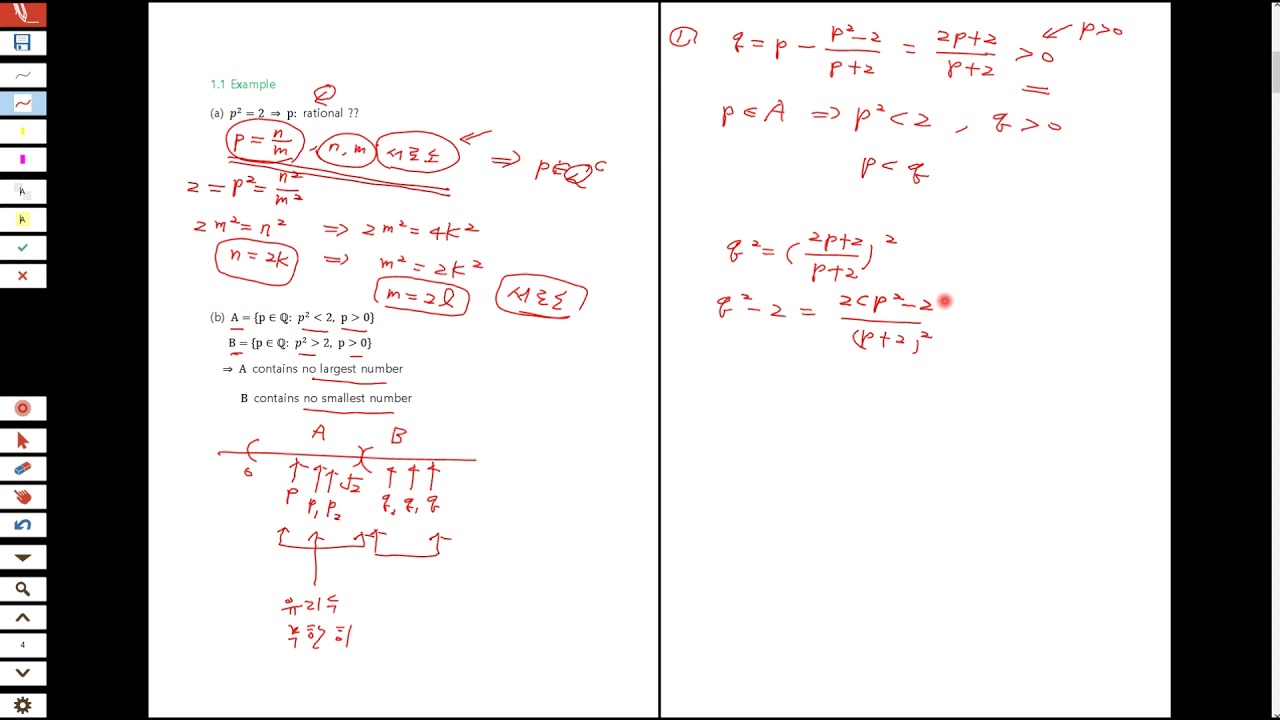 1.1 Example
(a) p² = 2 ⇒ p: rational ??
Q
p = n/m , n, m 서로소 ⇒ p ∈ Qᶜ
2 = p² = n²/m²
2m² = n² ⇒ 2m² = 4k²
n = 2k ⇒ m² = 2k²
m = 2l 서로소
(b) A = {p ∈ ℚ: p² < 2, p > 0}
B = {p ∈ ℚ: p² > 2, p > 0}
⇒ A contains no largest number
B contains no smallest number
A B
0 √2
p p₁ p₂ q₂ q₁ q
① q = p − (p²−2)/(p+2) = (2p+2)/(p+2) > 0 p>0
p ∈ A ⇒ p² < 2 , q > 0
p < q
q² = ((2p+2)/(p+2))²
q² − 2 = 2(p²−2/(p+2)²
4